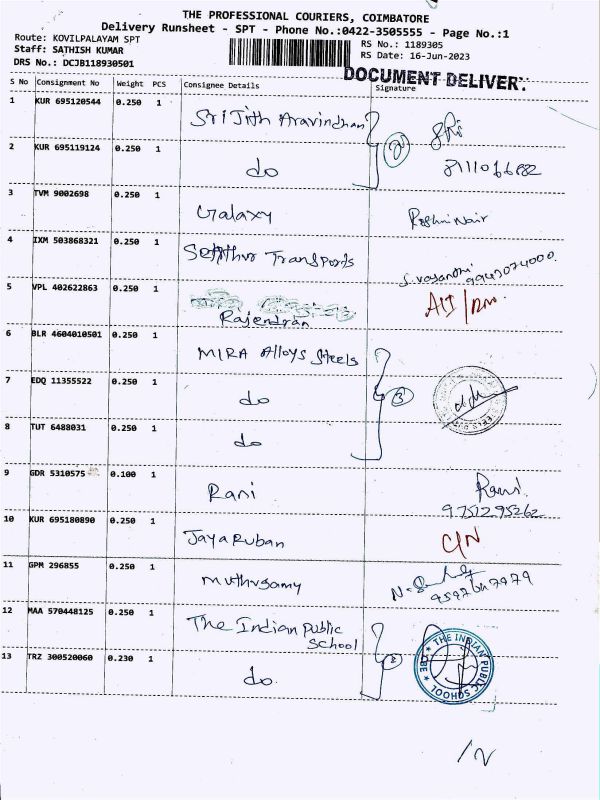 THE PROFESSIONAL COURIERS, COIMBATORE
Delivery Runsheet - SPT - Phone No.:0422-3505555 - Page No.:1
Route: KOVILPALAYAM SPT
RS No.: 1189305
Staff: SATHISH KUMAR
RS Date: 16-Jun-2023
DRS No.: DCJB118930501
DOCUMENT DELIVER
S No Consignment No Weight PCS Consignee Details Signature
1 KUR 695120544 0.250 1 Srijith Aravindhan Sri
2 KUR 695119124 0.250 1 do 2
3 TVM 9002698 0.250 1 Galaxy Roshni Nair
4 IXM 503868321 0.250 1 Transports S. Vasandhi
5 VPL 402622863 0.250 1 Rajendran
6 BLR 4604010501 0.250 1 MIRA Alloys Steels
7 EDQ 11355522 0.250 1 do 3
8 TUT 6488031 0.250 1 do
9 GDR 5310575 0.100 1 Rani Rani
9751295262
10 KUR 695180890 0.250 1 Jayaruban C/N
11 GPM 296855 0.250 1 Muthusamy
12 MAA 570448125 0.250 1 The Indian Public School
13 TRZ 300520060 0.230 1 do 2
THE INDIAN PUBLIC SCHOOL CBE